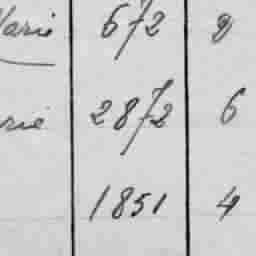 Marie 672 2
rie 2872 6
1851 4